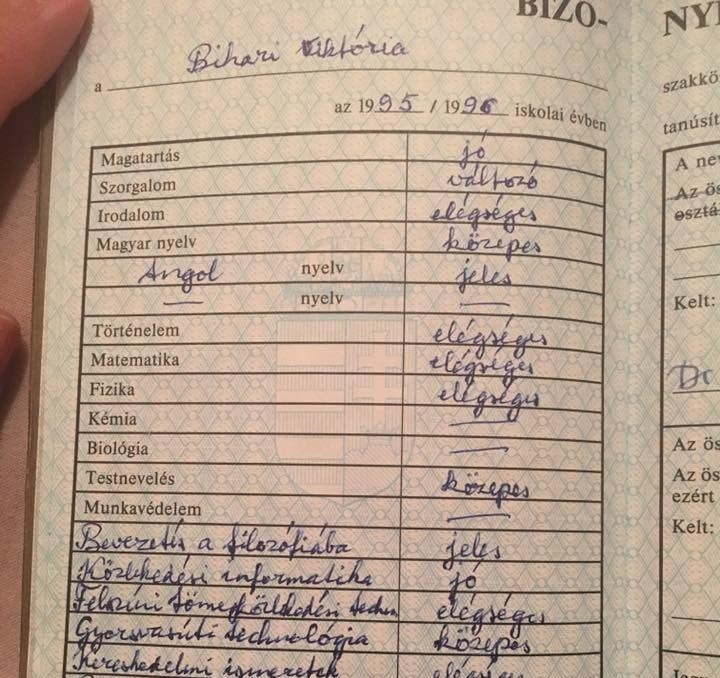 BIZO-
Bihari Viktória
a
az 1995 / 1996 iskolai évben
Magatartás jó
Szorgalom változó
Irodalom elégséges
Magyar nyelv közepes
Angol nyelv jeles
— nyelv —
Történelem elégséges
Matematika elégséges
Fizika elégséges
Kémia —
Biológia —
Testnevelés közepes
Munkavédelem —
Bevezetés a filozófiába jeles
Közlekedési informatika jó
Felszíni tömegközlekedési techn elégséges
Gyorsvasúti technológia közepes
Kereskedelmi ismeretek elégséges
NYI
szakkö
tanúsít
A nev
Az ös
osztá
Kelt:
Dr
Az ös
Az ös
ezért
Kelt: